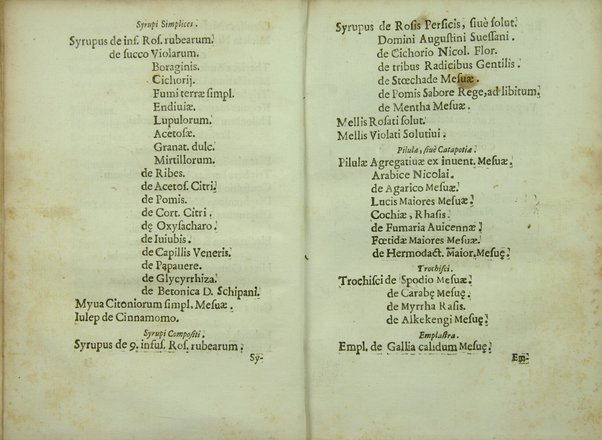 Syrupi Simplices.
Syrupus de inf. Ros. rubearum.
de succo Violarum.
Boraginis.
Cichorij.
Fumi terræ simpl.
Endiuiæ.
Lupulorum.
Acetosæ.
Granat. dulc.
Mirtillorum.
de Ribes.
de Acetos. Citri.
de Pomis.
de Cort. Citri.
de Oxysacharo.
de Iuiubis.
de Capillis Veneris.
de Papauere.
de Glycyrrhiza.
de Betonica D. Schipani.
Myua Citoniorum simpl. Mesuæ.
Iulep de Cinnamomo.
Syrupi Compositi.
Syrupus de 9. infus. Ros. rubearum.
Sy-
Syrupus de Rosis Persicis, siuè solut.
Domini Augustini Suessani.
de Cichorio Nicol. Flor.
de tribus Radicibus Gentilis.
de Stœchade Mesuæ.
de Pomis Sabore Rege, ad libitum.
de Mentha Mesuæ.
Mellis Rosati solut.
Mellis Violati Solutiui.
Pilulæ, siuè Catapotia.
Pilulæ Agregatiuæ ex inuent. Mesuæ.
Arabice Nicolai.
de Agarico Mesuæ.
Lucis Maiores Mesuæ.
Cochiæ, Rhasis.
de Fumaria Auicennæ.
Fœtidæ Maiores Mesuæ.
de Hermodact. Maior. Mesuę.
Trochisci.
Trochisci de Spodio Mesuæ.
de Carabę Mesuę.
de Myrrha Rasis.
de Alkekengi Mesuę.
Emplastra.
Empl. de Gallia calidum Mesuę.
Em-